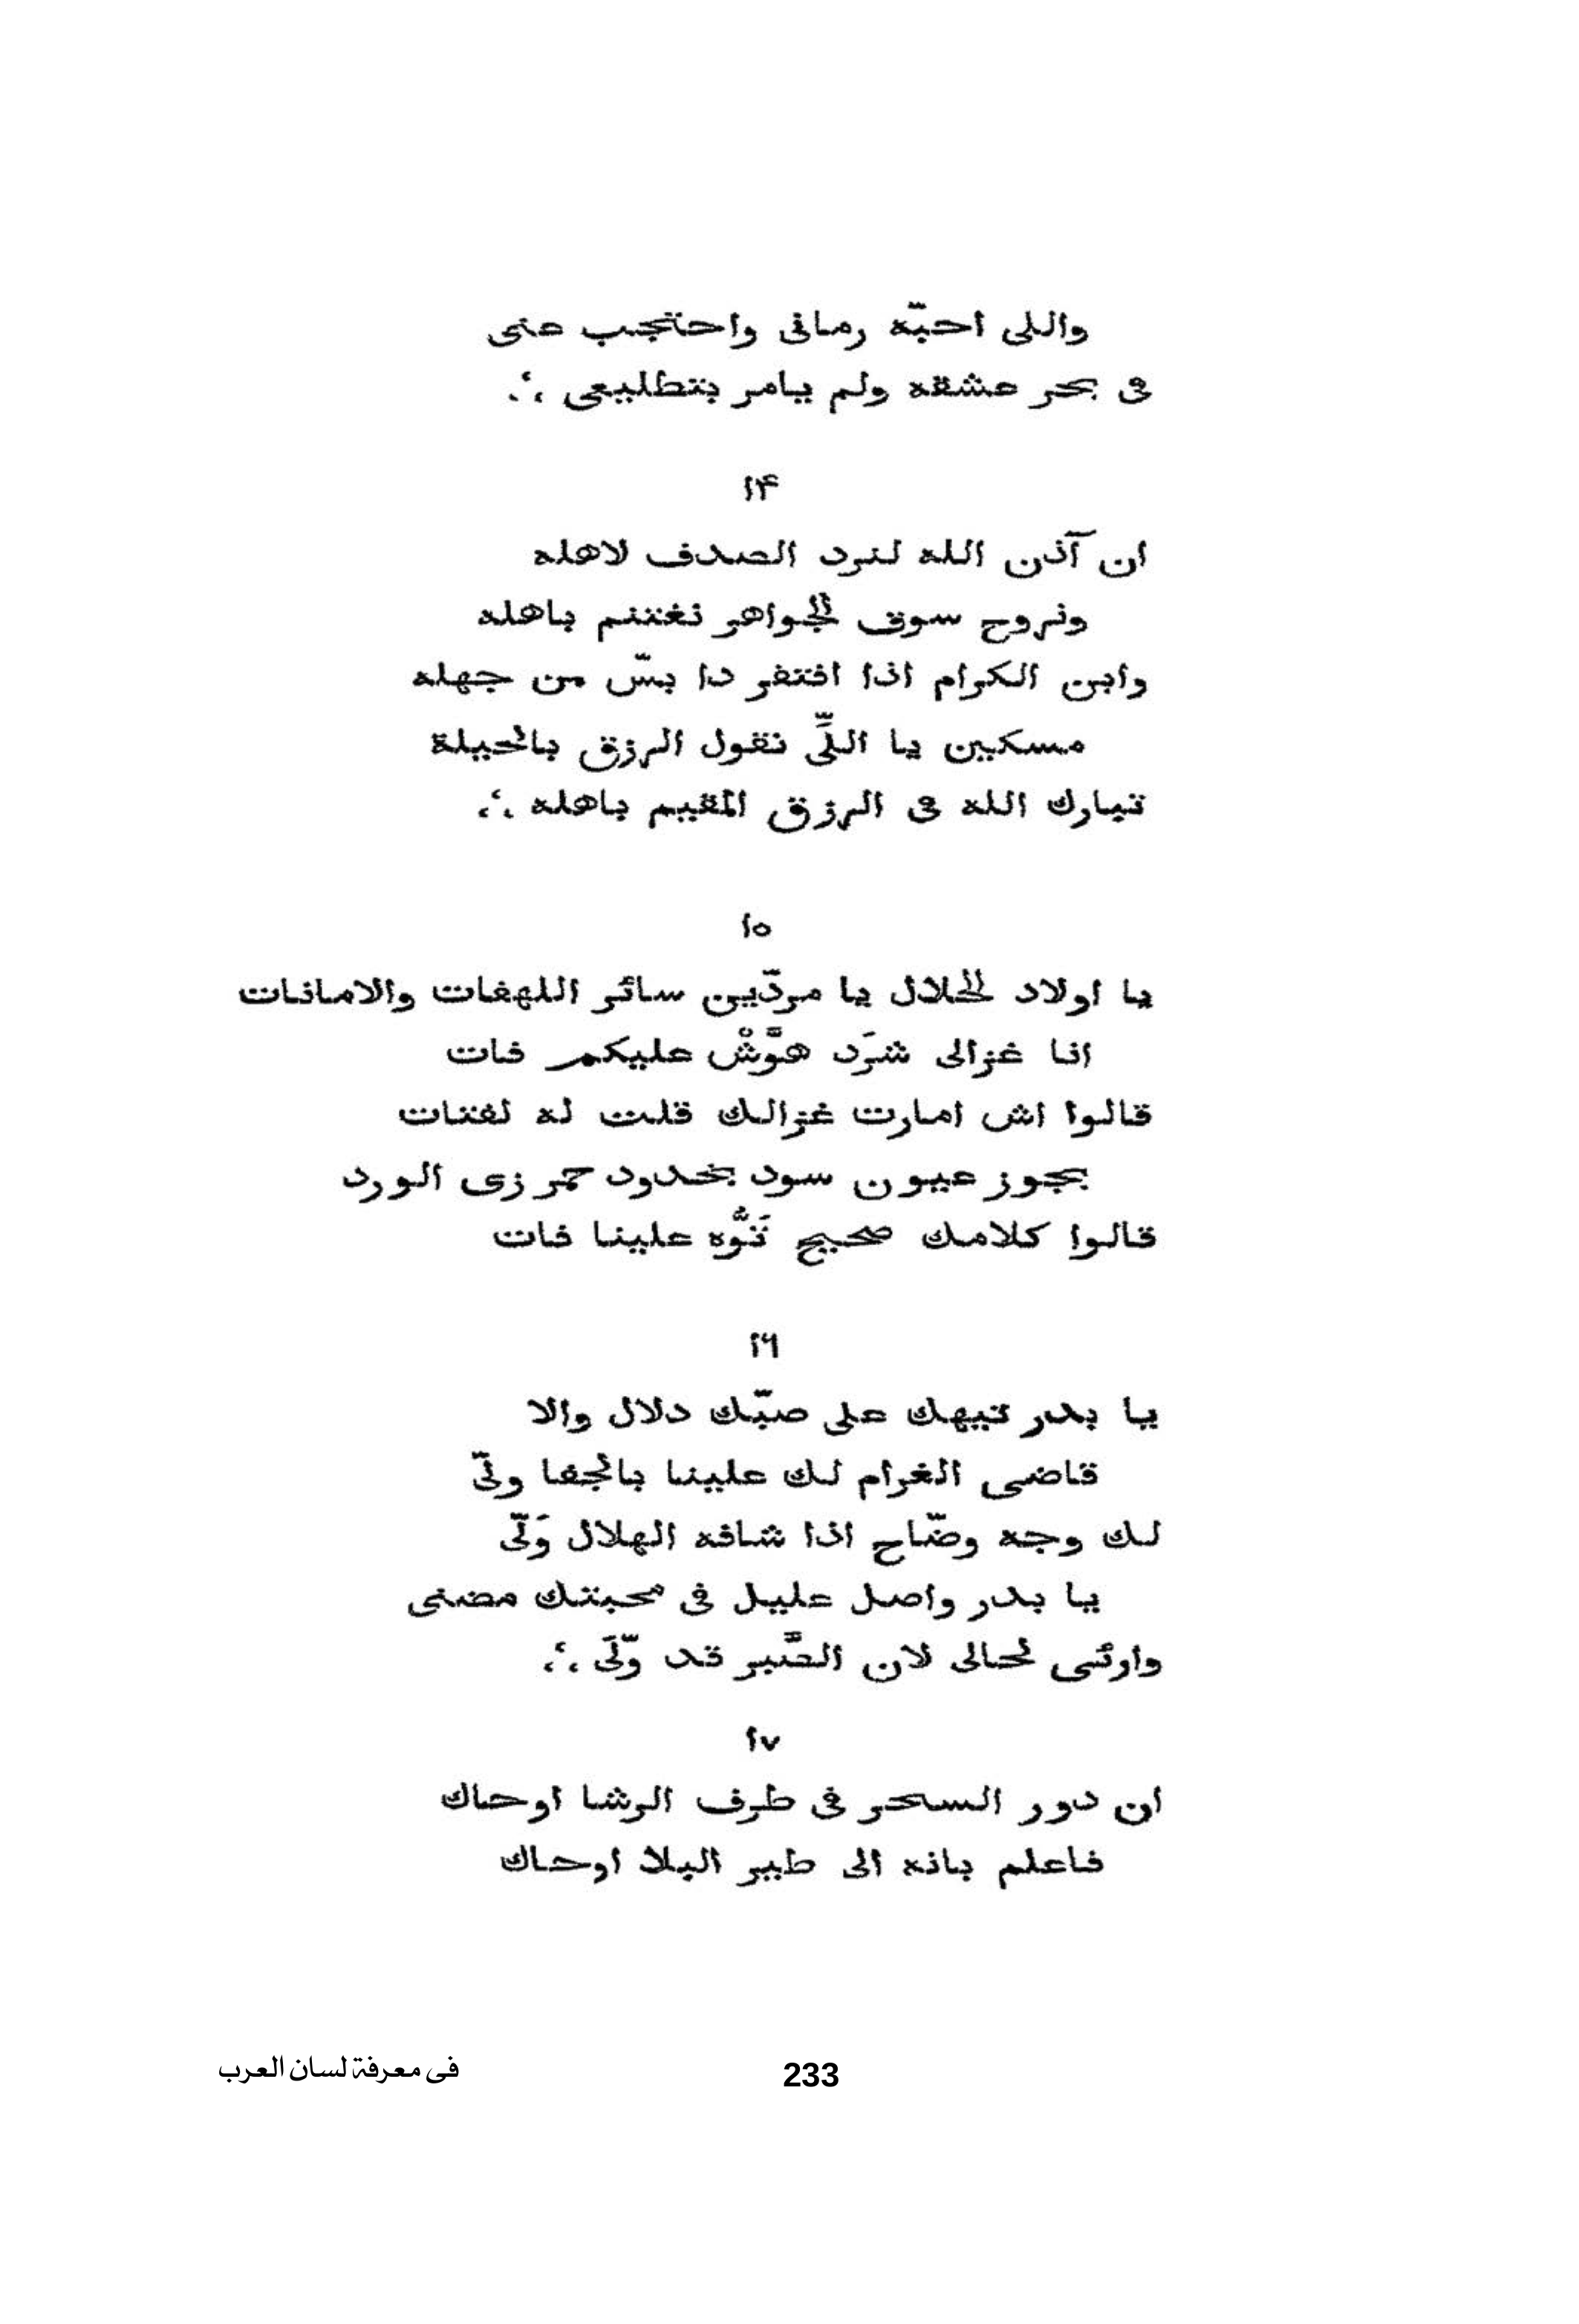 واللى احبّه رمانى واحتجب عنى
فى بحر عشقه ولم يامر بتطليعى ∴
۱۴
ان آذن الله لنرد الصدف لاهله
ونروح سوق الجواهر نغتنم باهله
وابن الكرام اذا افتقر دا بسّ من جهله
مسكين يا اللِّى نقول الرزق بالحيلة
تبارك الله فى الرزق المقيم باهله ∴
۱٥
يا اولاد الحلال يا مردّين سائر اللهفات والامانات
انا غزالى شرَد هوَّشْ عليكم فات
قالوا اش امارت غزالك قلت له لفتات
بجوز عيون سود بخدود حمر زى الورد
قالوا كلامك صحيح تَوُّه علينا فات
۱٦
يا بدر تيهك على صبّك دلال والا
قاضى الغرام لك علينا بالجفا ولّى
لك وجه وضّاح اذا شافه الهلال وَلّى
يا بدر واصل عليل فى محبتك مضنى
وارثى لحالى لان الصَّبر قد ولّى ∴
۱٧
ان دور السحر فى طرف الرشا اوحاك
فاعلم بانه الى طير البلا اوحاك
فى معرفة لسان العرب
233